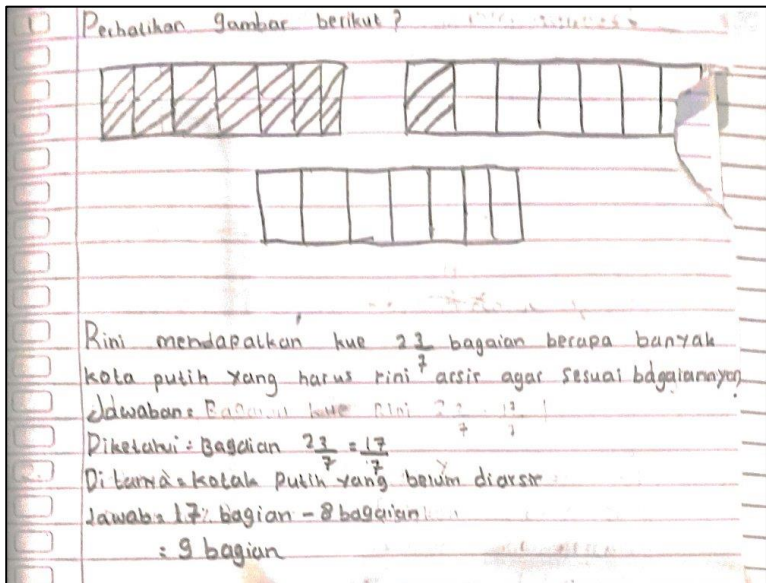 1 Perhatikan gambar berikut?
Rini mendapatkan kue 2 3/7 bagaian berapa banyak
kotak putih yang harus rini arsir agar sesuai bagaiannya
Jawaban: Bagaian kue Rini 17/7
Diketahui: Bagaian 2 3/7 = 17/7
Ditanya: kotak putih yang belum diarsir
Jawab: 17 bagian - 8 bagaian
: 9 bagian